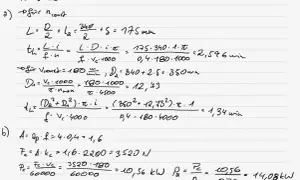 a) → für n const
L = D/2 + la = 340/2 + 5 = 175 mm
th = L · i / f · n = L · D · i · π / f · vc · 1000 = 175 · 340 · 1 · π / 0,4 · 180 · 1000 = 2,596 min
→ für vc const = 180 m/min , Da = 340 + 2 · 5 = 350 mm
= vc · 1000 / π · = 180 · 1000 / π · 4500 = 12,73
th = (Da² + ²) · π · i / f · vc · 4000 = (350² - 12,73²) · π · 1 / 0,4 · 180 · 4000 = 1,34 min
b) A = ap · f = 4 · 0,4 = 1,6
Fc = A · kc = 1,6 · 2200 = 3520 N
Pc = Fc · vc / 60000 = 3520 · 180 / 60000 = 10,56 kW = Pc / = 10,56 / = 14,08 kW